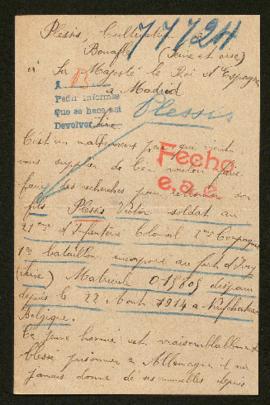 Plessis, Cultivateur à
77724
Bonafle (Seine et oise)
à Sa Majesté le Roi d'Espagne
à Madrid
Pedir informes
que se hace así
Devolver
Plessis
Sire
C'est un malheureux père qui vient
vous supplier de bien vouloir faire
Fecha
e.a.c.
faire des recherches pour retrouver son
fils Plessis Victor soldat au
21ème d'Infanterie Colonial 2me Compagnie
1er bataillon incorporé au fort d'Ivry
(Seine) Matricule 015805 disparu
depuis le 22 Aout 1914 à Neufchateau
Belgique.
Ce jeune homme est vraisemblablement
blessé prisonnier en Allemagne il n'a
jamais donné de ses nouvelles depuis